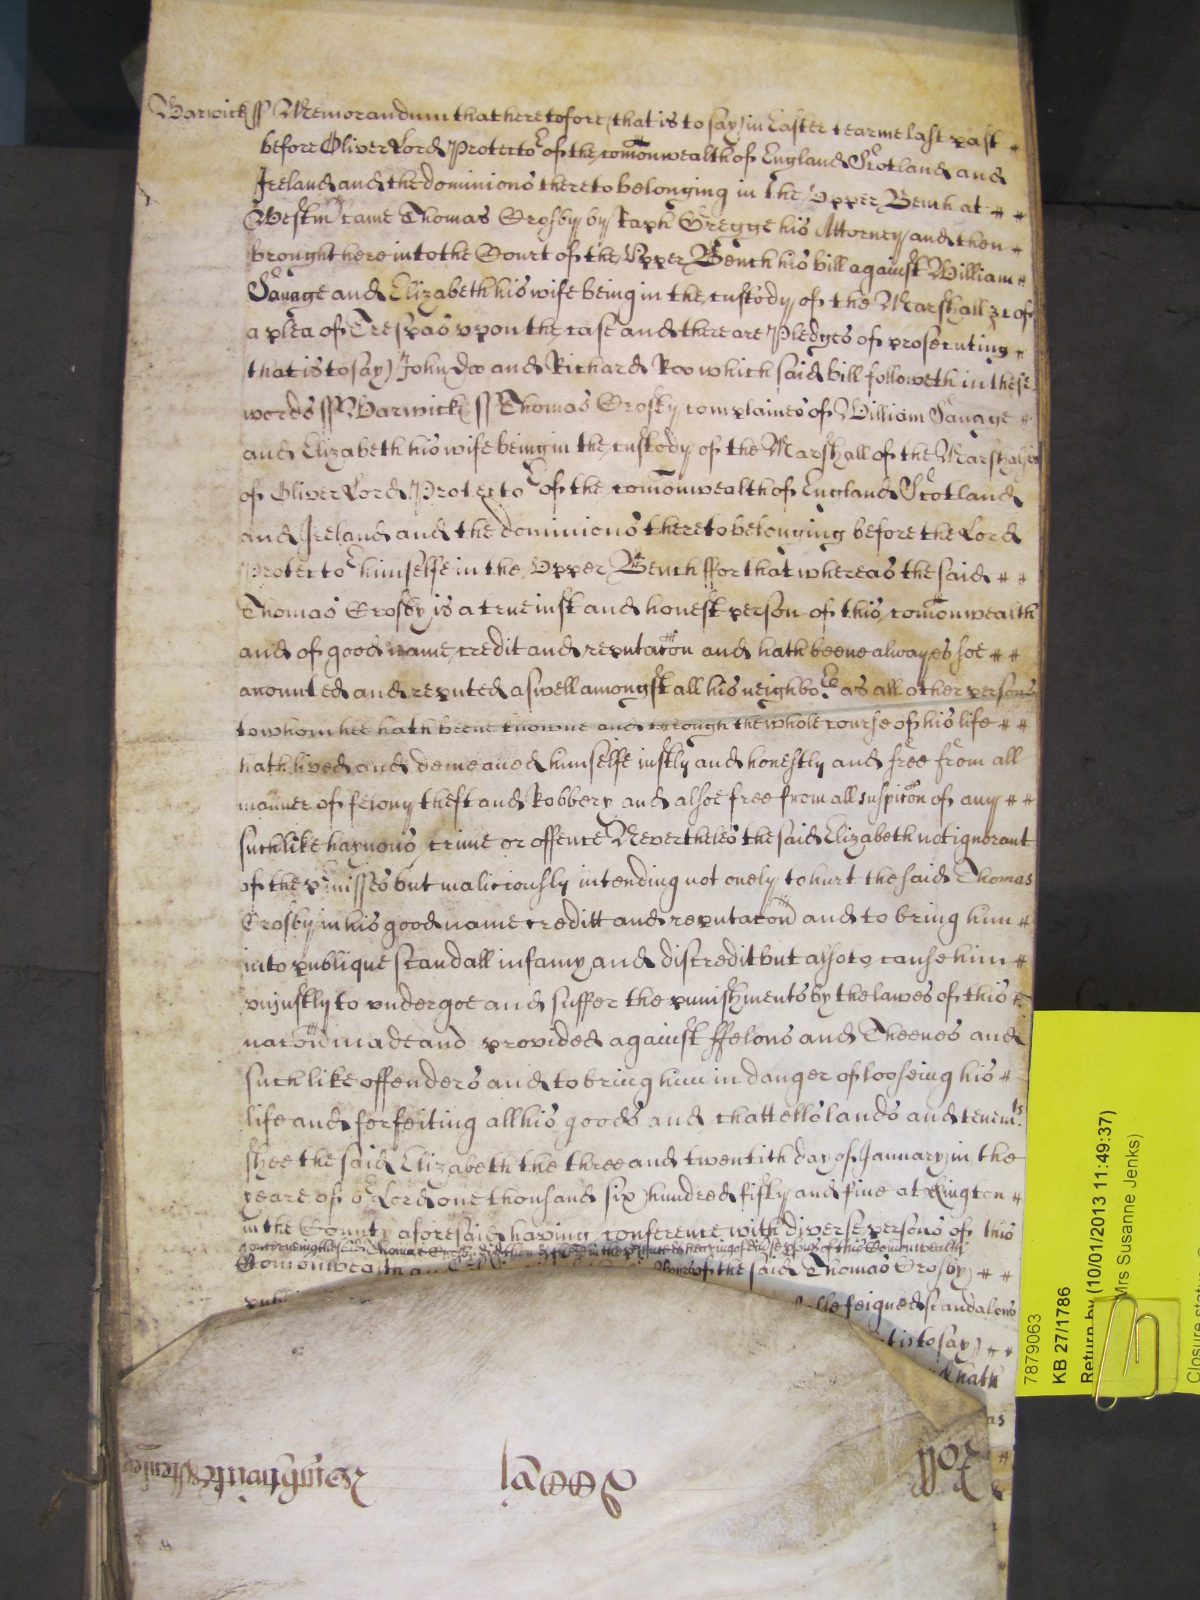 Warwick ss Memorandum that heretofore (that is to say) in Easter tearme last past
before Oliver Lord Protector of the comonwealth of England Scotland and
Ireland and the dominions thereto belonging in the Upper Bench at
Westmr came Thomas Crosby by Raph Gregge his Attorney and then
brought here into the Court of the Upper Bench his bill against William
Savage and Elizabeth his wife being in the custody of the Marshall &c of
a plea of Trespas upon the case and there are Pledges of prosecuting
that is to say) John Doo and Richard Roo which said bill followeth in these
words ss Warwick ss Thomas Crosby complaines of William Savage
and Elizabeth his wife being in the custody of the Marshall of the Marshalsie
of Oliver Lord Protector of the comonwealth of England Scotland
and Ireland and the dominions thereto belonging before the Lord
Protector himselfe in the Upper Bench ffor that whereas the said
Thomas Crosby is a true iust and honest person of this comonwealth
and of good name credit and reputacon and hath beene alwayes soe
accounted and reputed aswell amongst all his neighbors as all other persons
to whom hee hath beene knowne and through the whole course of his life
hath lived and demeaned himselfe iustly and honestly and free from all
manner of felony theft and Robbery and alsoe free from all suspicon of any
such like haynous crime or offence Nevertheles the said Elizabeth not ignorant
of the premisses but maliciously intending not onely to hurt the said Thomas
Crosby in his good name creditt and reputacon and to bring him
into publique scandall infamy and discredit but also to cause him
vniustly to vndergoe and suffer the punishments by the lawes of this
nacon made and provided against ffelons and Theeves and
such like offenders and to bring him in danger of looseing his
life and forfeiting all his goods and chattells lands and tenemts
shee the said Elizabeth the three and twentith day of January in the
yeare of or Lord one thousand six hundred fifty and five at
in the County aforesaid haveing conference with diverse persons of this
concerneing the said Thomas Crosby did then & there in the presence & hearing of divse psons of this Comonwealth
Comonwealth of the said Thomas Crosby
feigned scandalous
t is to say)
hath
as
Roll
7879063
KB 27/1786
Return by (10/01/2013 11:49:37)
Mrs Susanne Jenks)
Closure status